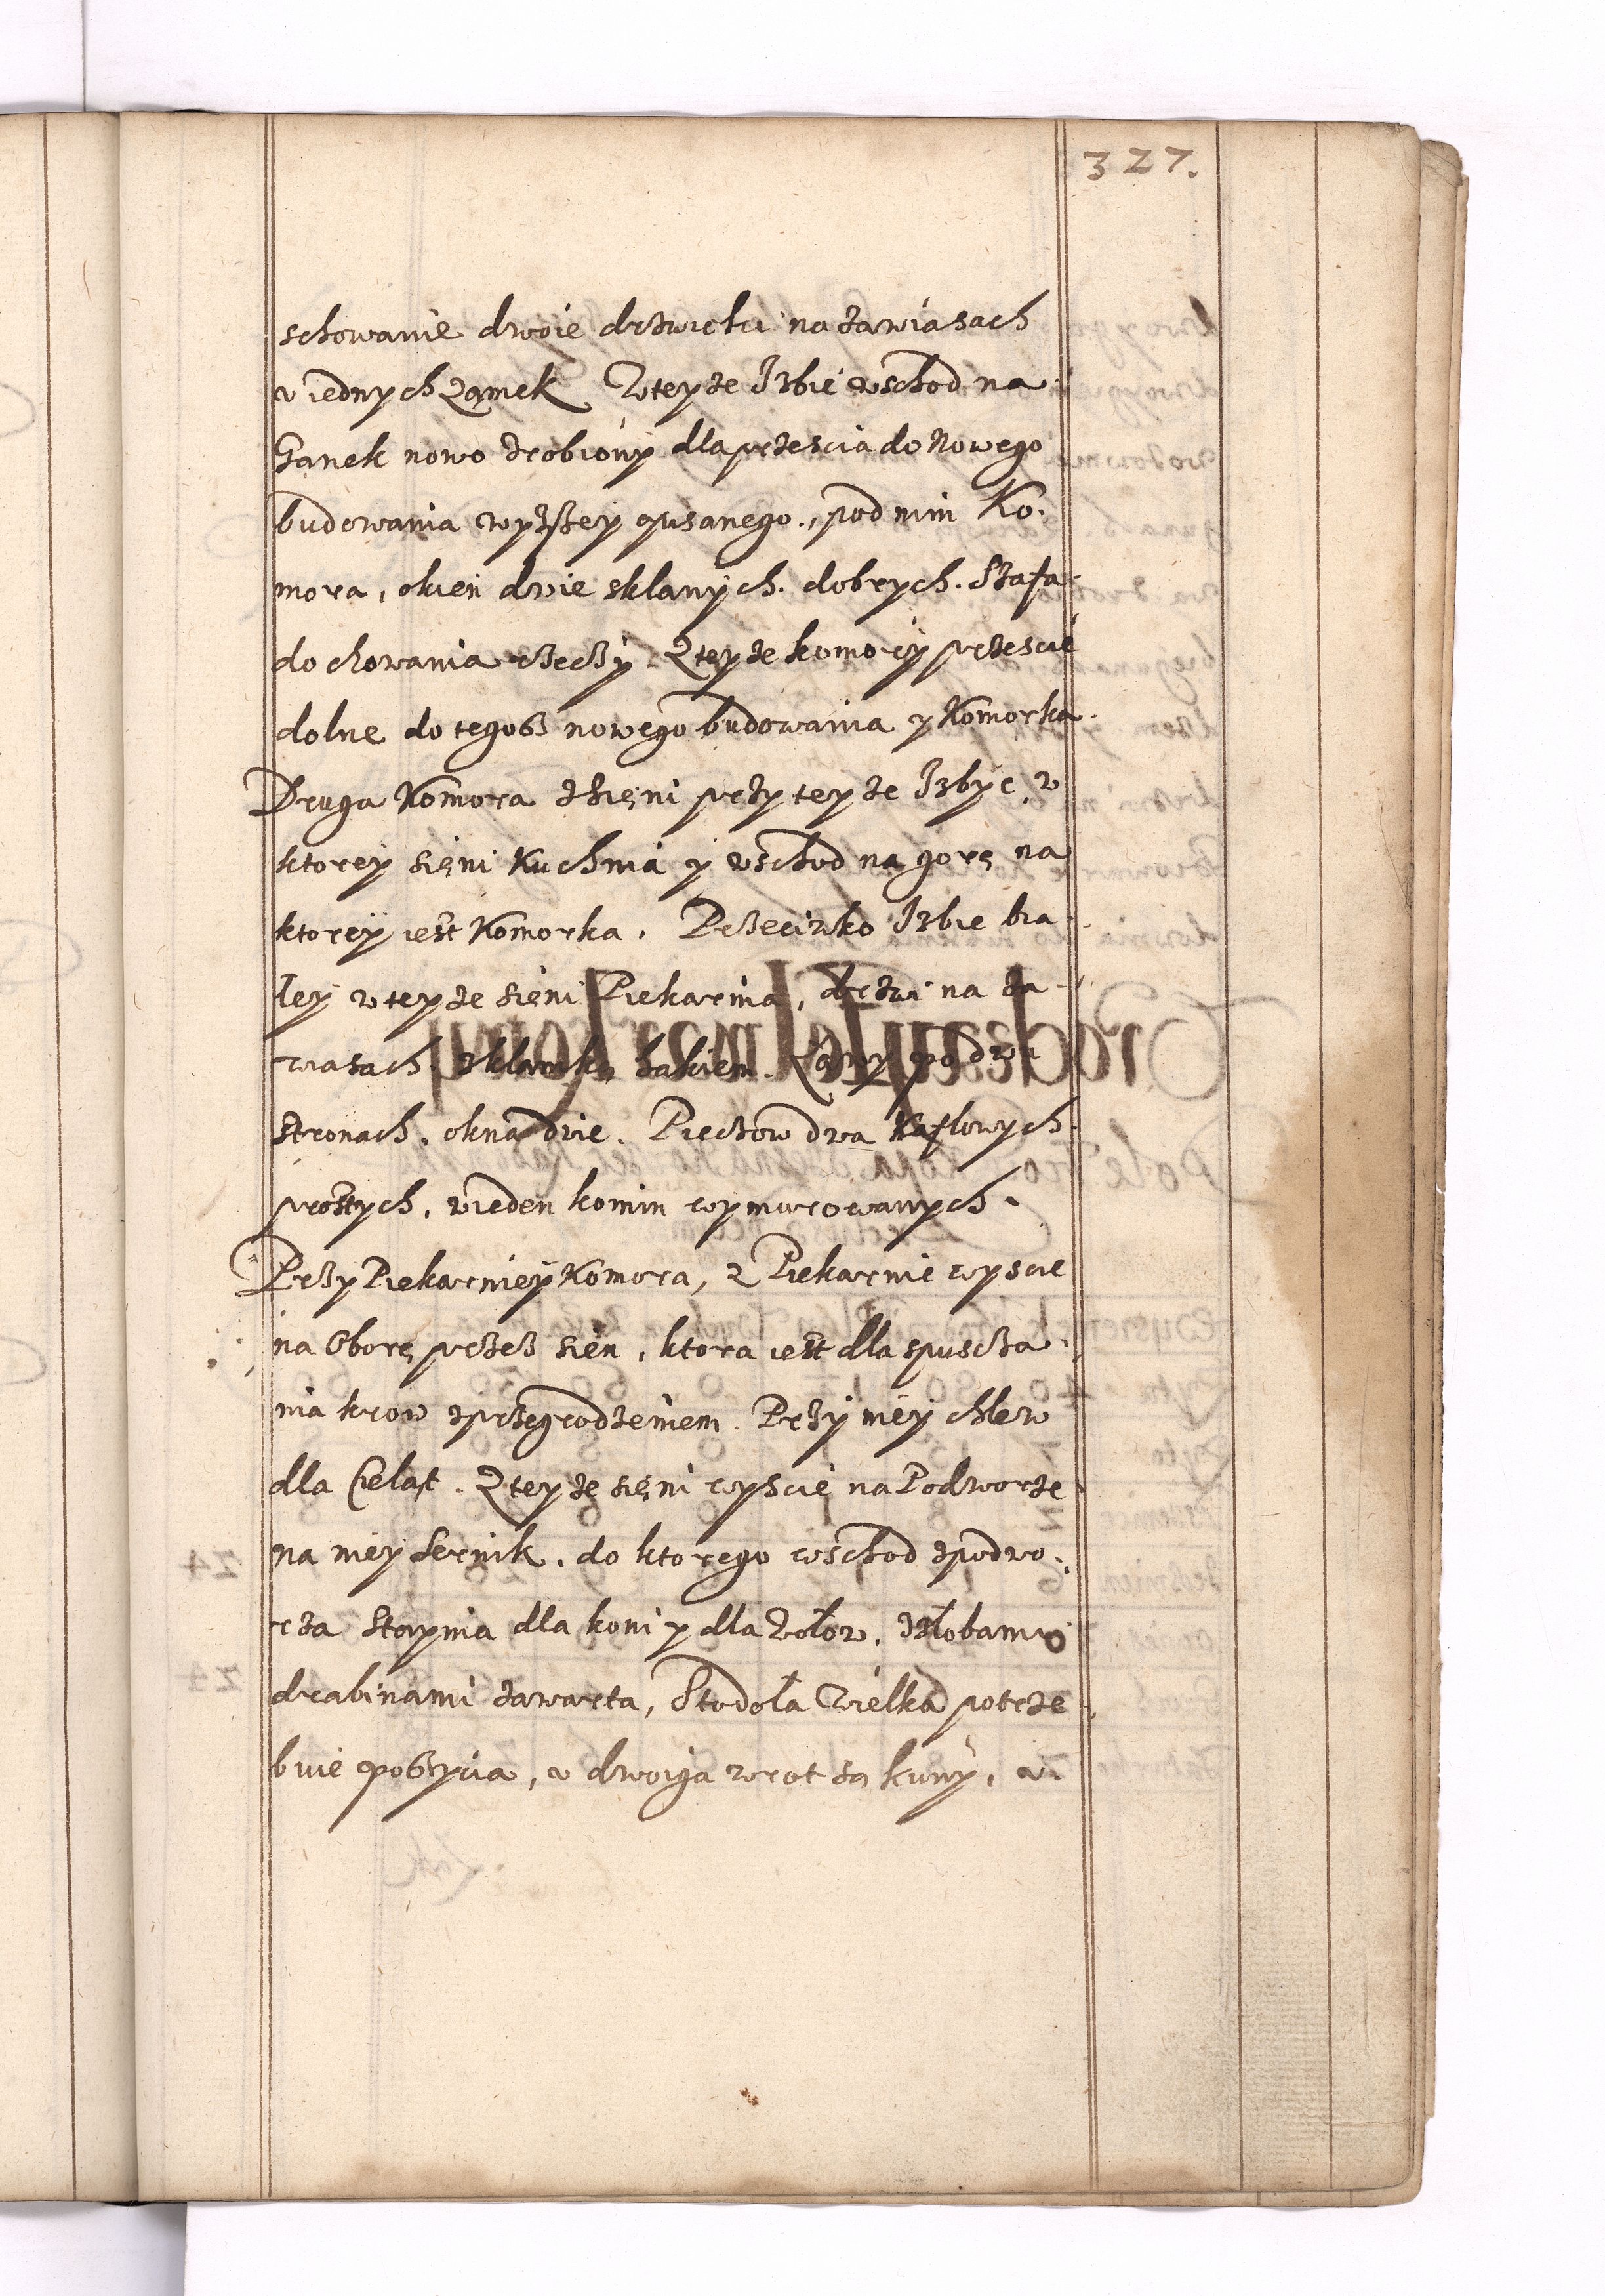 327.
schowanie dwoie drzwiczki na zawiasach
v iednych zamek W teyze Izbie wschod na
Ganek nowo zrobiony dla przescia do Nowego
budowania wyzszey opisanego., pod nim Ko.
mora, okien dwie sklanych. dobrych. Szafa
do chowania rzeczy. Z teyze komory przescie
dolne do tegosz nowego budowania y Komorka.
Druga Komora z sięni przy teyze Izbye, w
ktorey sięni Kuchnia y wschod na gorę na
ktorey iest Komorka. Przeciwko Izbie bia
łey w teyze sięni Piekarnia, drzwi na za
wiasach z klamką hakiem. Ławy po dwu
stronach. okna dwie. Piecow dwa Kaflowych
prostych. w ieden komin wymurowanych.
Przy Piekarniey Komora, z Piekarnie wyscie
na Oborę przesz sien, ktora iest dla spuscza
nia krow z przegrodzeniem. Przy niey chlew
dla Cieląt. Z teyze sięni wyscie na Podworze
na niey Sernik. do ktorego wschod z podwo.
rza Staynia dla koni y dla Wołow. z złobami
drabinami zawarta, Stodoła Wielka potrze
buie poszycia, v dwoyga wrot są kuny, v.